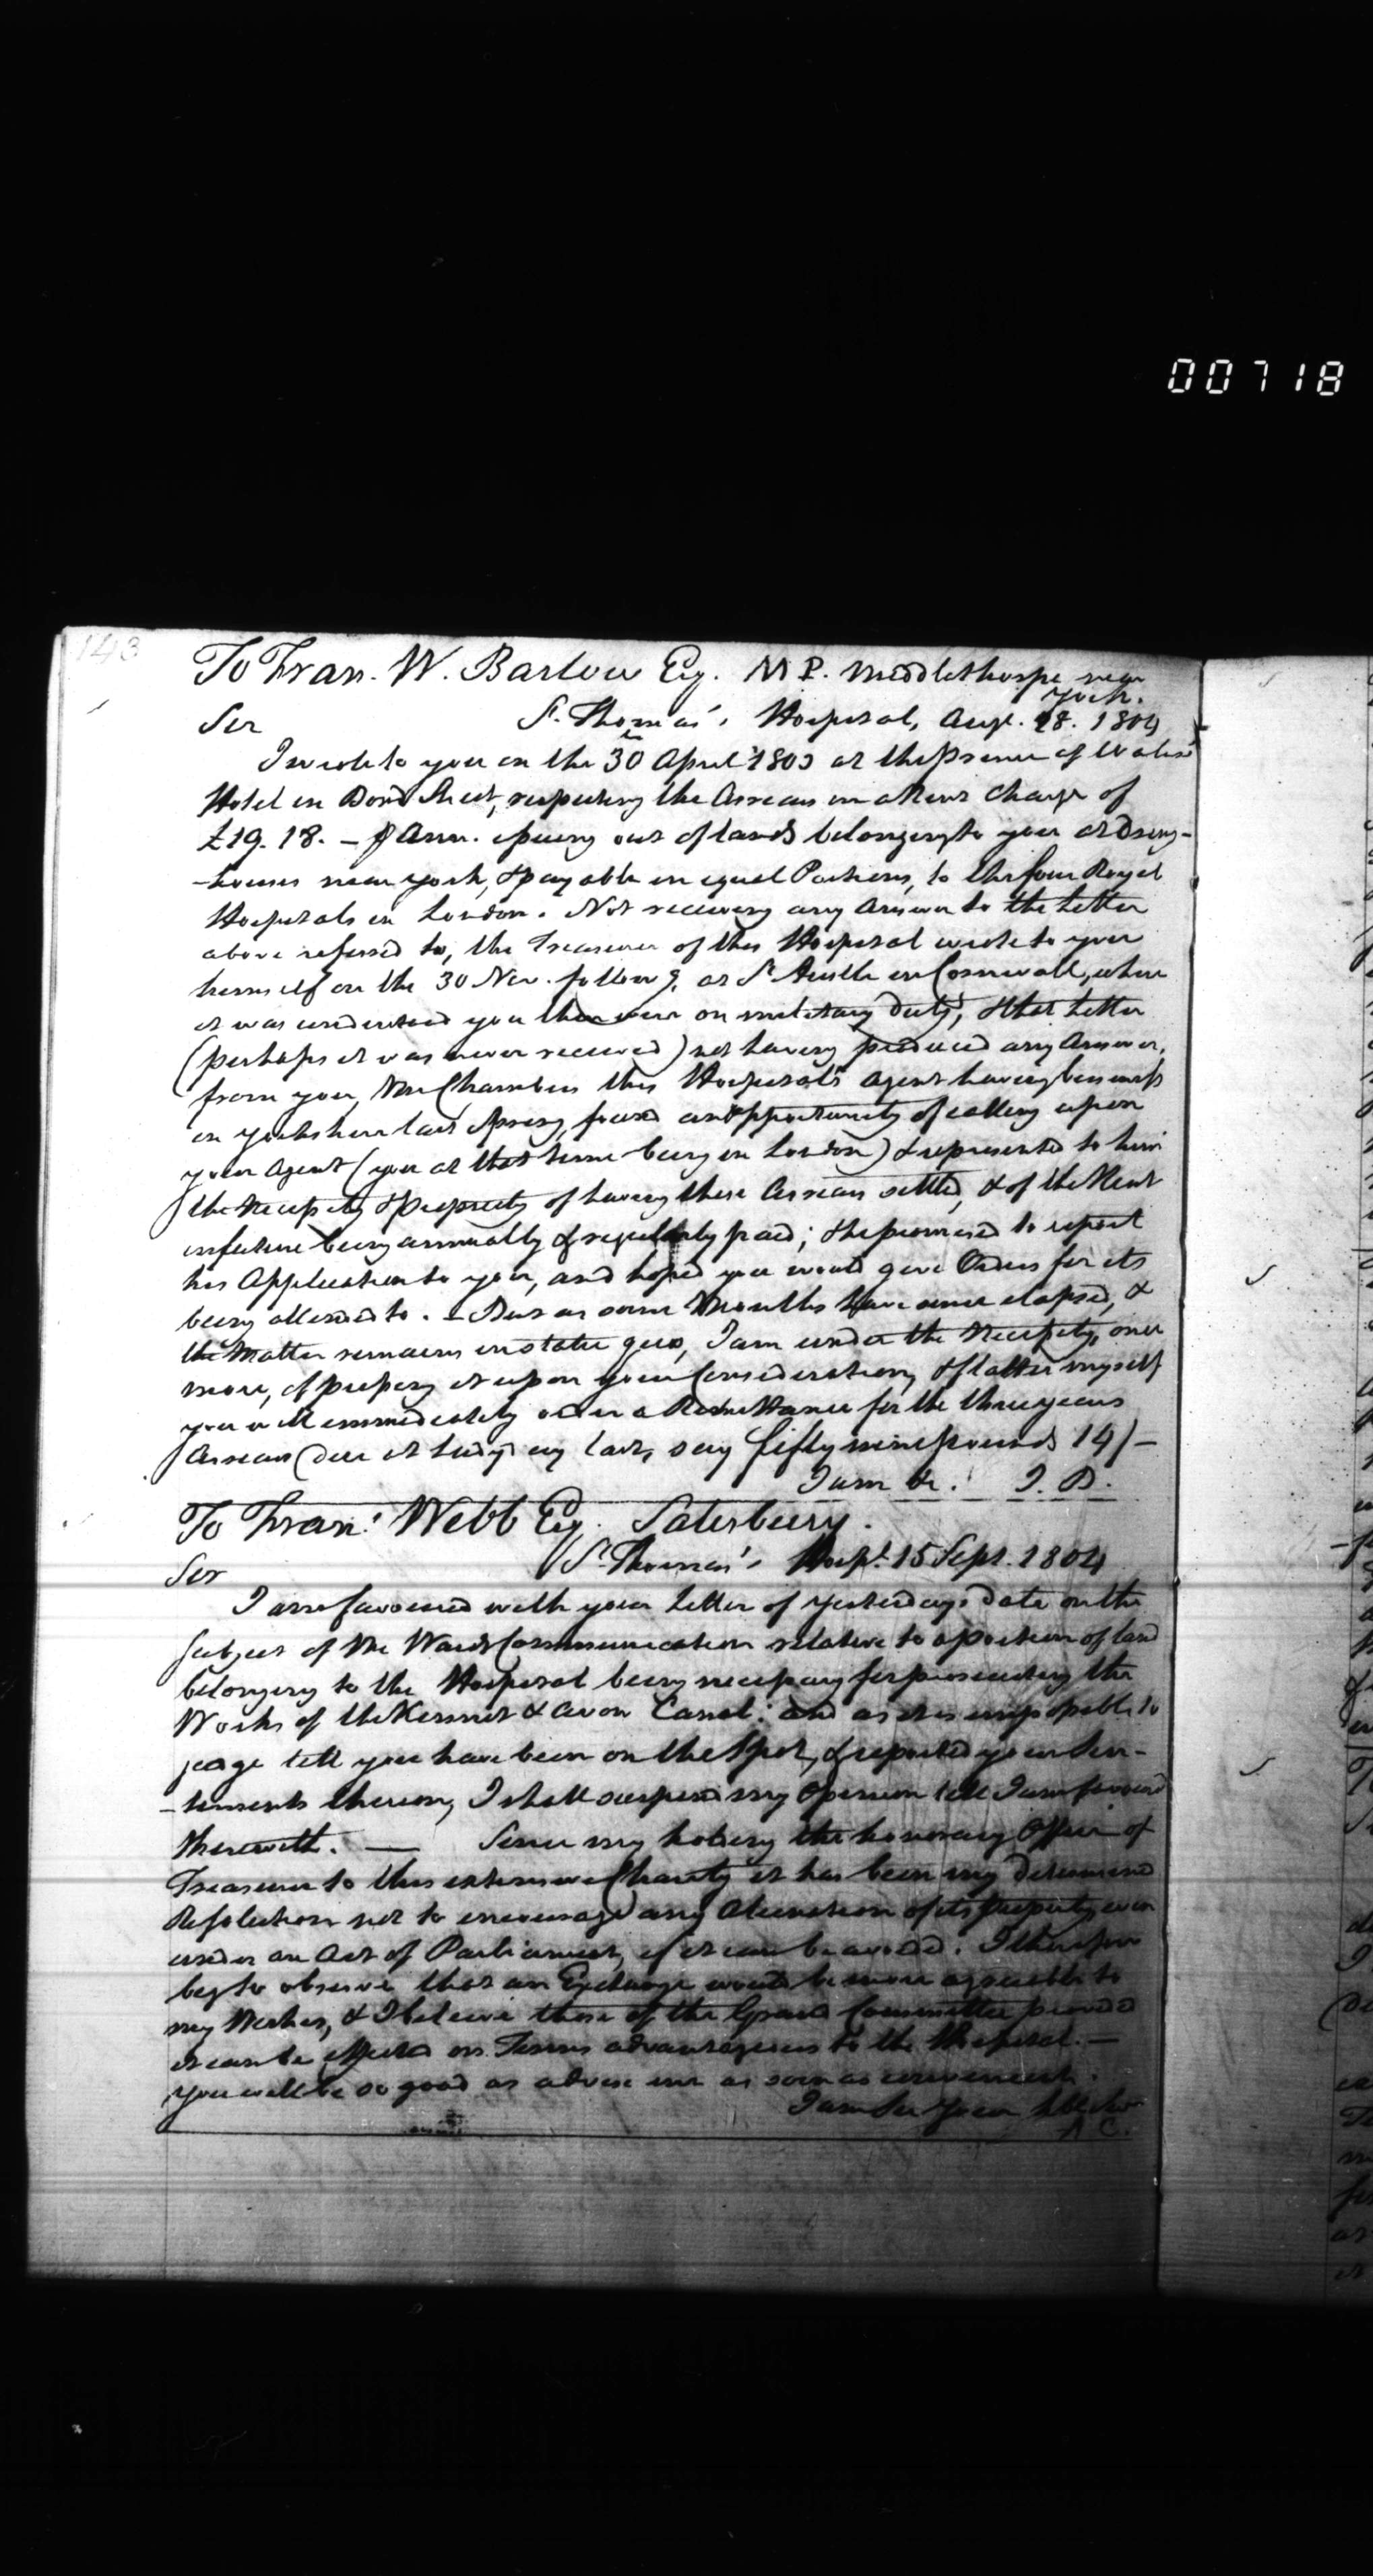 00718
143
To Fran. W. Barlow Esq. M P. Middlethorpe near
York.
Sir St. Thomas's Hospital, Augt. 28. 1804
I wrote to you on the 30 April 1803 at the Prince of Wales's
Hotel in Bond Street, respecting the Arrears on a Rent Charge of
£19. 18. – p Ann. issuing out of lands belonging to you at Dring-
-houses near York, & payable in equal Portions, to the four Royal
Hospitals in London. Not receiving any Answer to the Letter
above referred to, the Treasurer of this Hospital wrote to you
himself on the 30 Nov. followg. at St Austle in Cornwall, where
it was understood you then were on military Duty, & that Letter
(perhaps it was never received) not having produced any Answer,
from you, Mr Chambers this Hospital's Agent having business
in Yorkshire last Spring, found an opportunity of calling upon
your Agent (you at that time being in London) & represented to him
the Necessity & Propriety of having these Arrears settled, & of the Rent
in future being annually & regularly paid; & he promised to report
his Application to you, and hoped you would give Orders for its
being attended to. – But as some Months have since elapsed, &
the Matter remains in statu quo, I am under the Necessity, once
more, of pressing it upon your Consideration, & flatter myself
you will immediately order a Remittance for the three years
Arrears (due at Lady day last, say fifty nine pounds 14/–
I am &c. I. B.
To Frans. Webb Esq. Salisbury.
Sir St Thomas's Hospl. 15 Sept. 1804
I am favoured with your Letter of Yesterdays Date on the
subject of Mr Wards Communication relative to a portion of land
belonging to the Hospital being necessary for prosecuting the
Works of the Kennet & Avon Canal: and as it is impossible to
judge till you have been on the Spot, & reported your Sen-
-timents thereon, I shall suspend my Opinion till I am favoured
therewith. — Since my holding the honorary Office of
Treasurer to this extensive Charity it has been my determined
Resolution not to encourage any Alienation of its Property even
under an Act of Parliament, if it can be avoided. I therefore
beg to observe that an Exchange would be more agreeable to
my Wishes, & I believe those of the Grand Committee provided
it can be effected on Terms advantageous to the Hospital. —
You will be so good as advise me as soon as convenient.
I am Sir Your Ble Ser
A C.